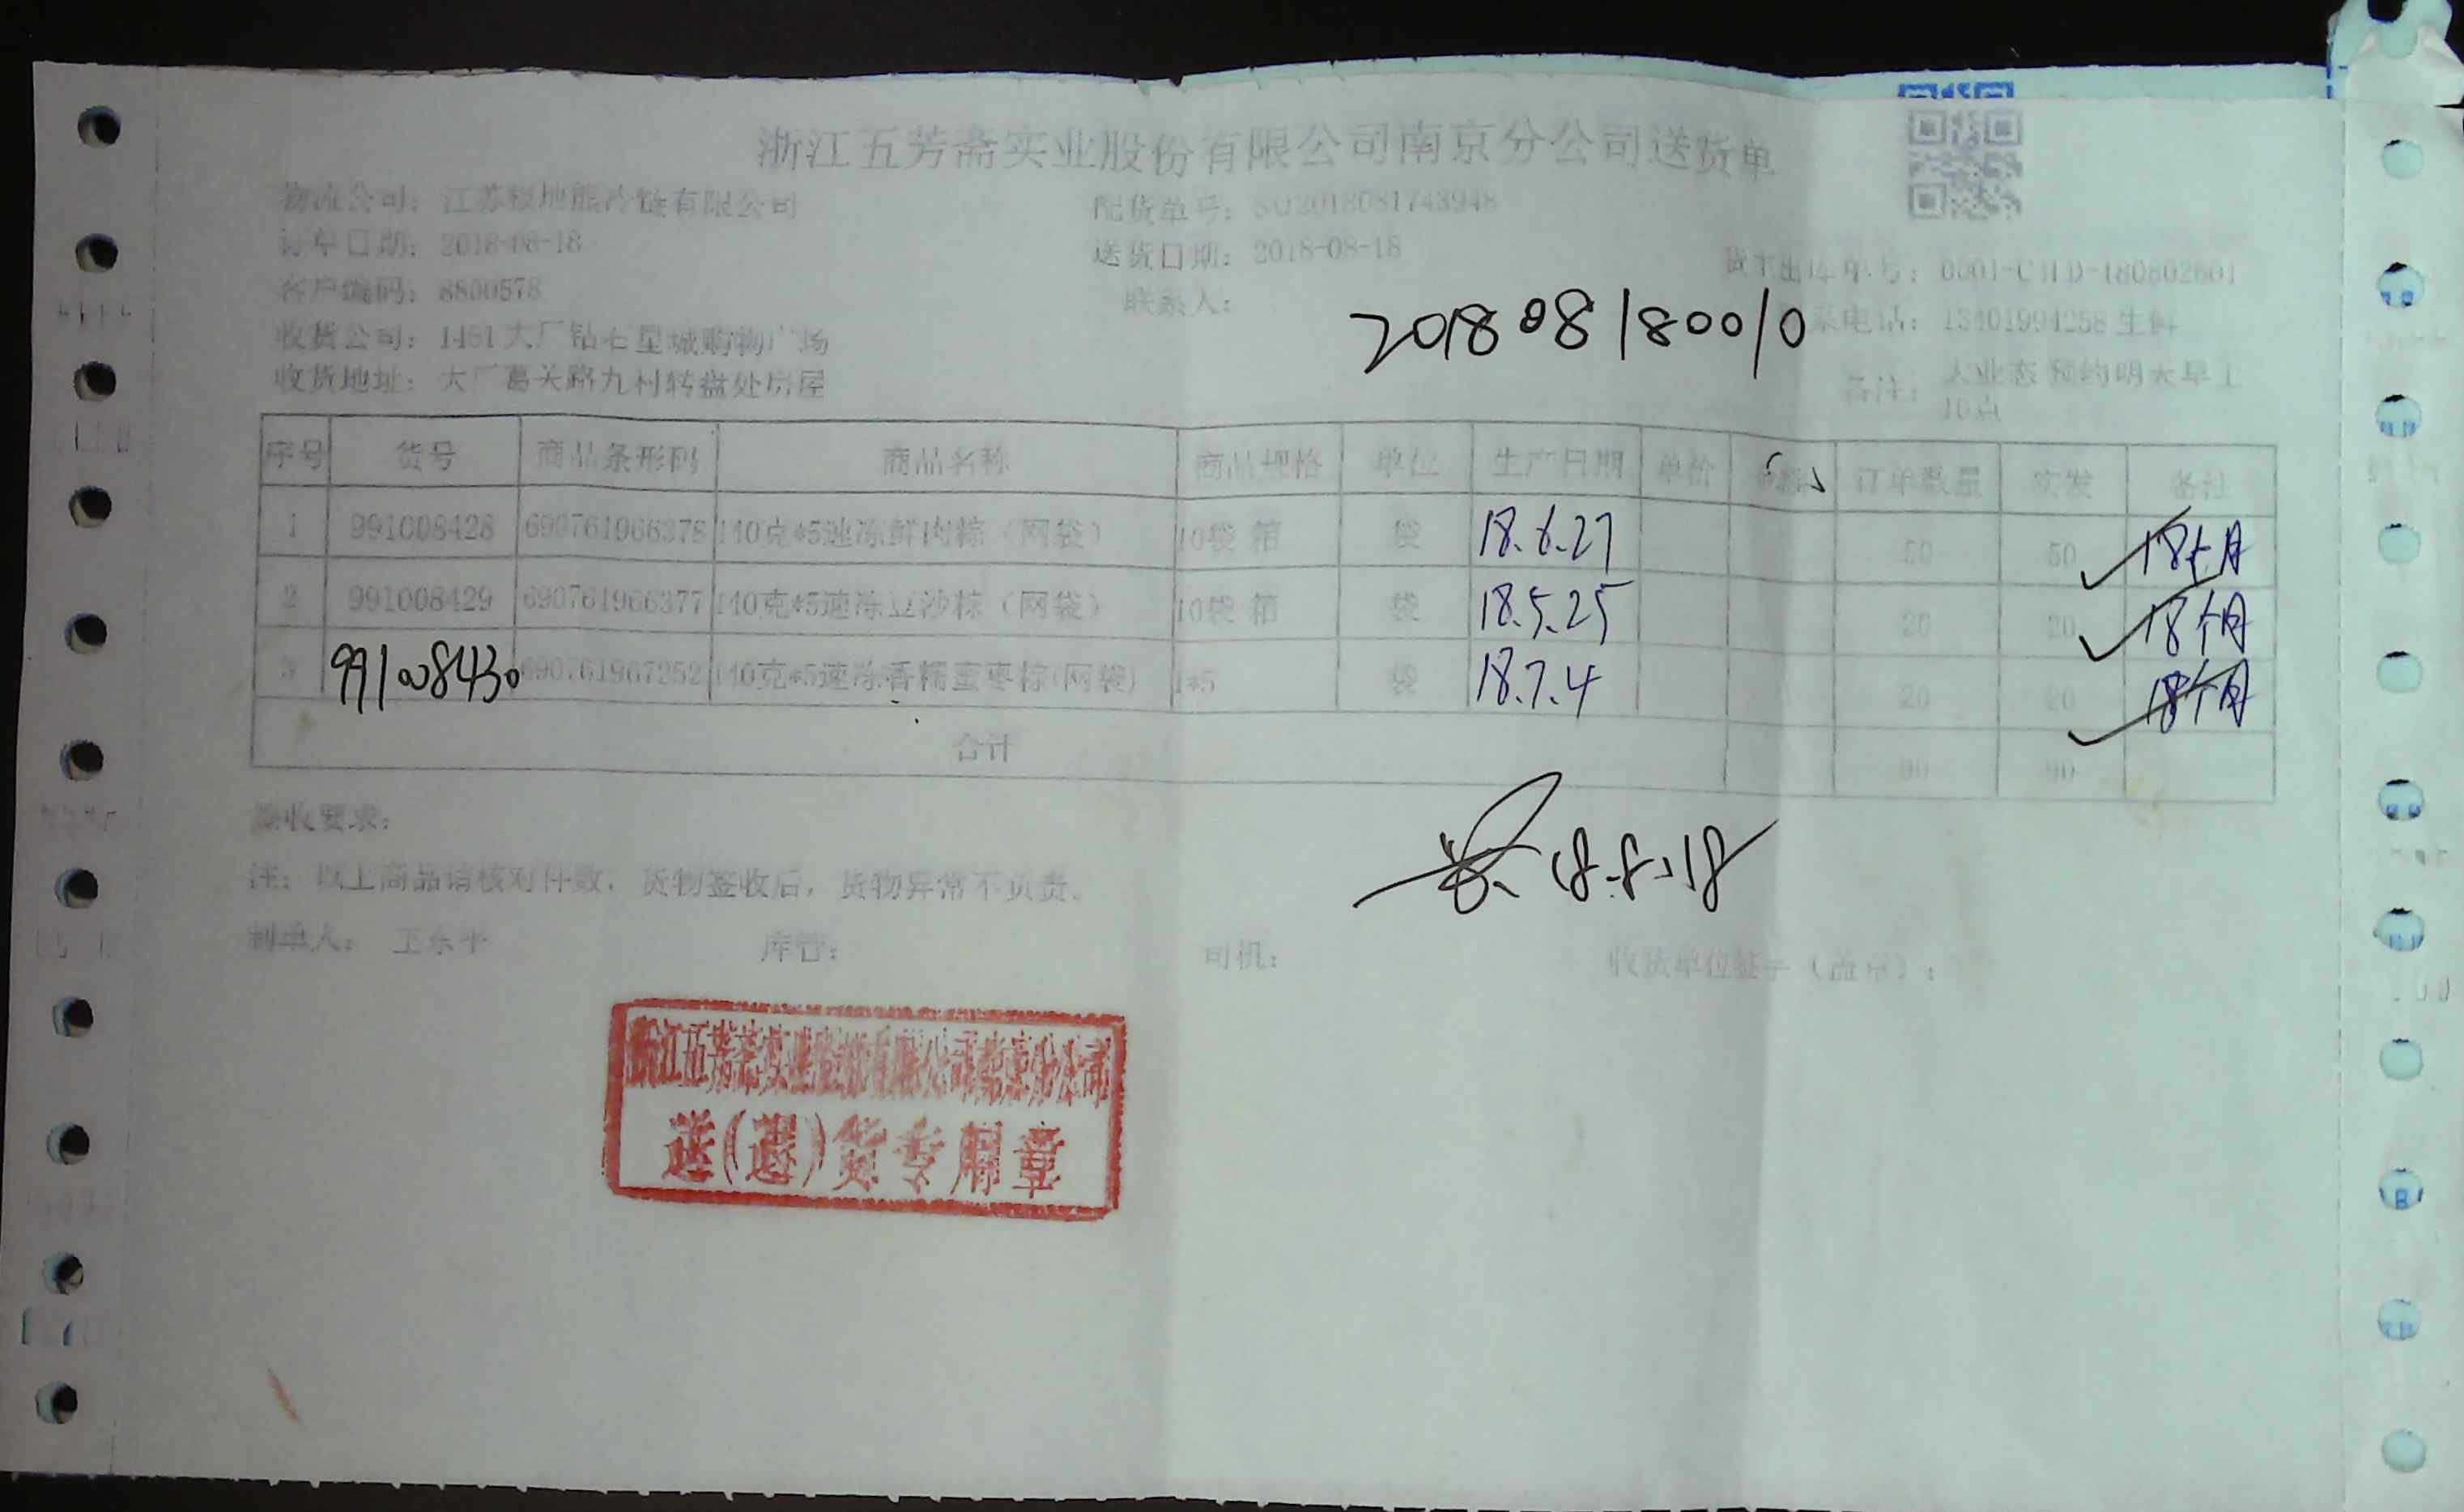 浙江五芳斋实业股份有限公司南京分公司送货单
物流公司：江苏 地熊冷链有限公司
配货单号：SO2018081743948
订单日期：2018-08-18
送货日期：2018-08-18
货主出库单号：0001-CHD-180802601
客户编码：8800578
联系人：
20180818001 0
系电话：13401994258 生鲜
收货公司：1451大厂钻石星城购物广场
收货地址：大厂葛关路九村转盘处房屋
备注：大业态 预约明天早上10点
序号 货号 商品条形码 商品名称 商品规格 单位 生产日期 单价 订单数量 实发 备注
1 991008428 690761966378 140克*5速冻鲜肉粽（网袋） 10袋 箱 袋 18.6.27 50 50 18个月
2 991008429 690761966377 140克*5速冻豆沙粽（网袋） 10袋 箱 袋 18.5.25 20 20 18个月
3 991008430 690761967252 140克*5速冻香糯蜜枣粽(网袋) 1*5 袋 18.7.4 20 20 18个月
合计 90 90
签收要求：
注：以上商品请核对件数，货物签收后，货物异常不负责。
18.8.18
制单人： 王东平 库管： 司机： 收货单位签字（盖章）：
浙江五芳斋实业股份有限公司南京分公司
送(退)货专用章